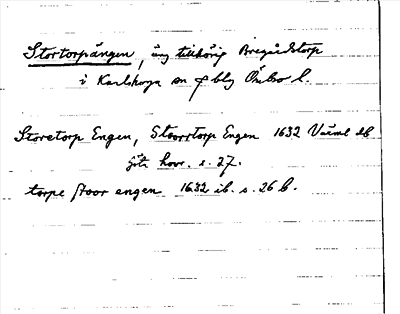 Stortorpängen, äng tillhörig Bregårdstorp
i Karlskoga sn o bhd Örebro l.
Storetorp Engen, Stoorrtorp Engen 1632 Värml
Göta hovr. s. 27.
torpe stoor engen 1632 ib. s. 26 b.